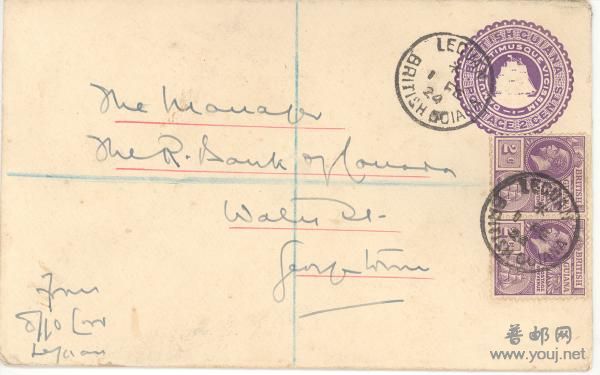 BRITISH GUIANA
POSTAGE 2 CENTS
LEGUAN
*
1 FE
24
BRITISH GUIANA
The Manager
The R. Bank of Canada
Water St.
Georgetown
2c
BRITISH
GUIANA
LEGUAN
*
24
BRITISH GUIANA
BRITISH
GUIANA
From
Leguan
普邮网
www.youj.net